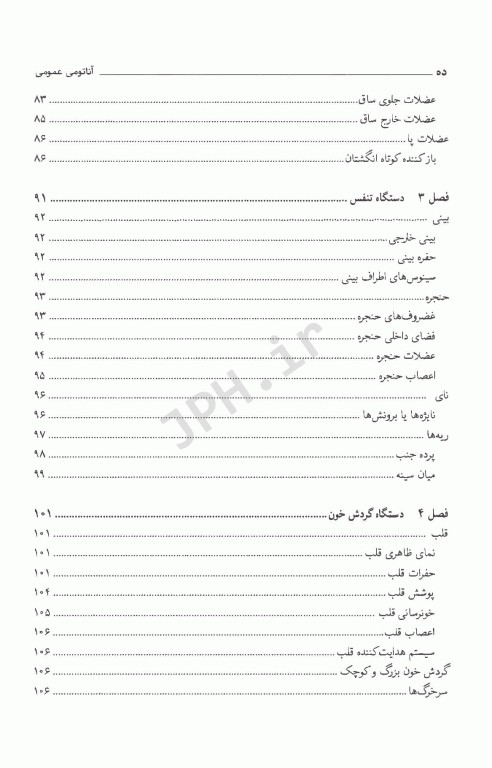 ده آناتومی عمومی
عضلات جلوی ساق ۸۳
عضلات خارج ساق ۸۵
عضلات پا ۸۶
بازکننده کوتاه انگشتان ۸۶
فصل ۳ دستگاه تنفس ۹۱
بینی ۹۲
بینی خارجی ۹۲
حفره بینی ۹۲
سینوس‌های اطراف بینی ۹۲
حنجره ۹۳
غضروف‌های حنجره ۹۳
فضای داخلی حنجره ۹۴
عضلات حنجره ۹۴
اعصاب حنجره ۹۵
نای ۹۶
نایژه‌ها یا برونش‌ها ۹۶
ریه‌ها ۹۷
پرده جنب ۹۸
میان سینه ۹۹
فصل ۴ دستگاه گردش خون ۱۰۱
قلب ۱۰۱
نمای ظاهری قلب ۱۰۱
حفرات قلب ۱۰۱
پوشش قلب ۱۰۴
خونرسانی قلب ۱۰۵
اعصاب قلب ۱۰۶
سیستم هدایت‌کننده قلب ۱۰۶
گردش خون بزرگ و کوچک ۱۰۶
سرخرگ‌ها ۱۰۶
JPH.ir